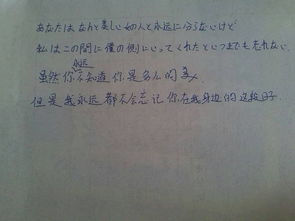 あなたはなんと美しい女の人と永远に分らないけど
私はこの間に僕の側にいってくれたといつまでも忘れない.
永远
虽然你不知道你是多么的美
但是我永远都不会忘记你在我身边的这段日子.